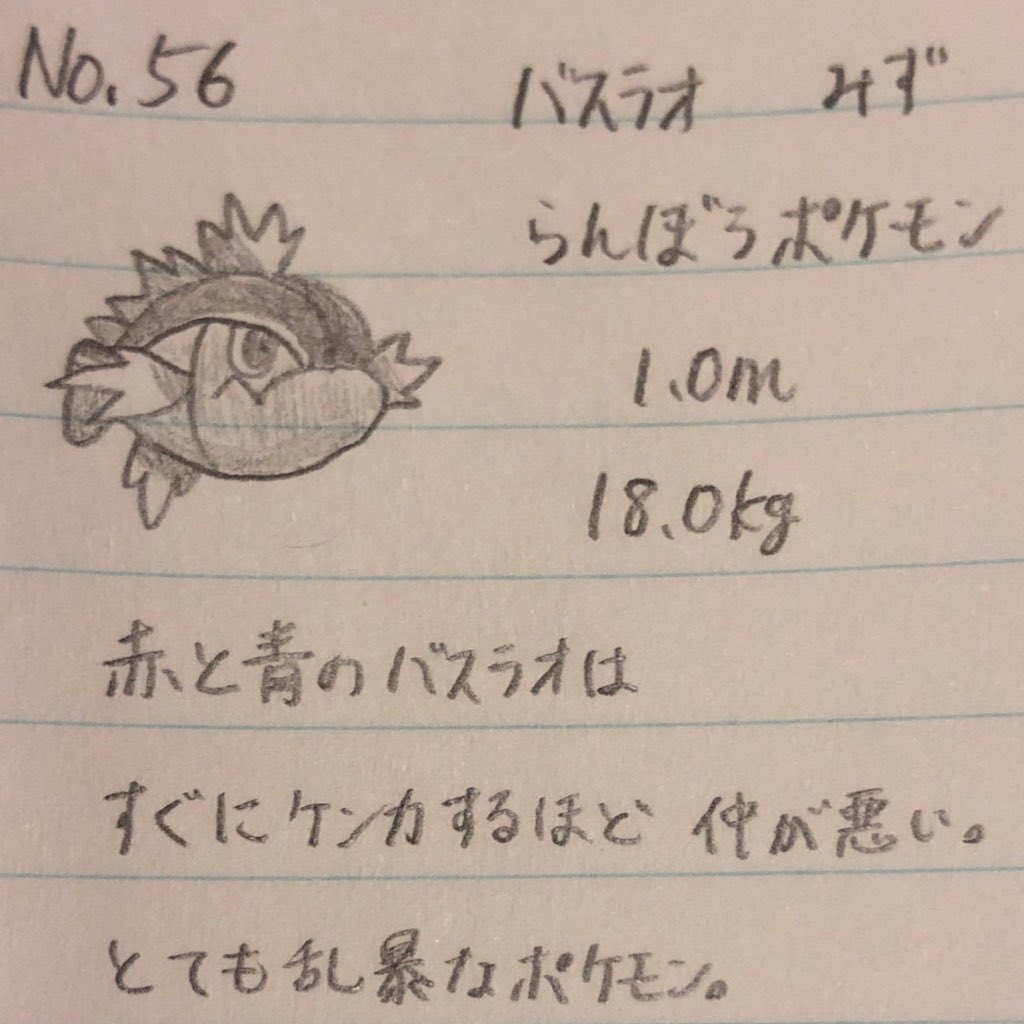 No.56
バスラオ みず
らんぼうポケモン
1.0m
18.0kg
赤と青のバスラオは
すぐにケンカするほど 仲が悪い。
とても乱暴なポケモン。